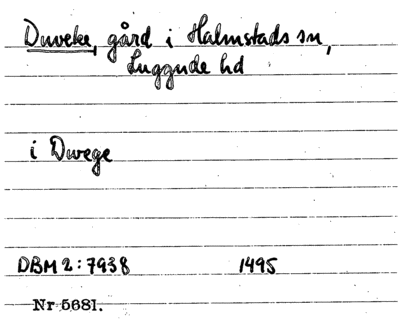 Duveke, gård i Halmstads sn,
Luggude hd
i Dwege
DBM 2:7938 1495
Nr 5681.